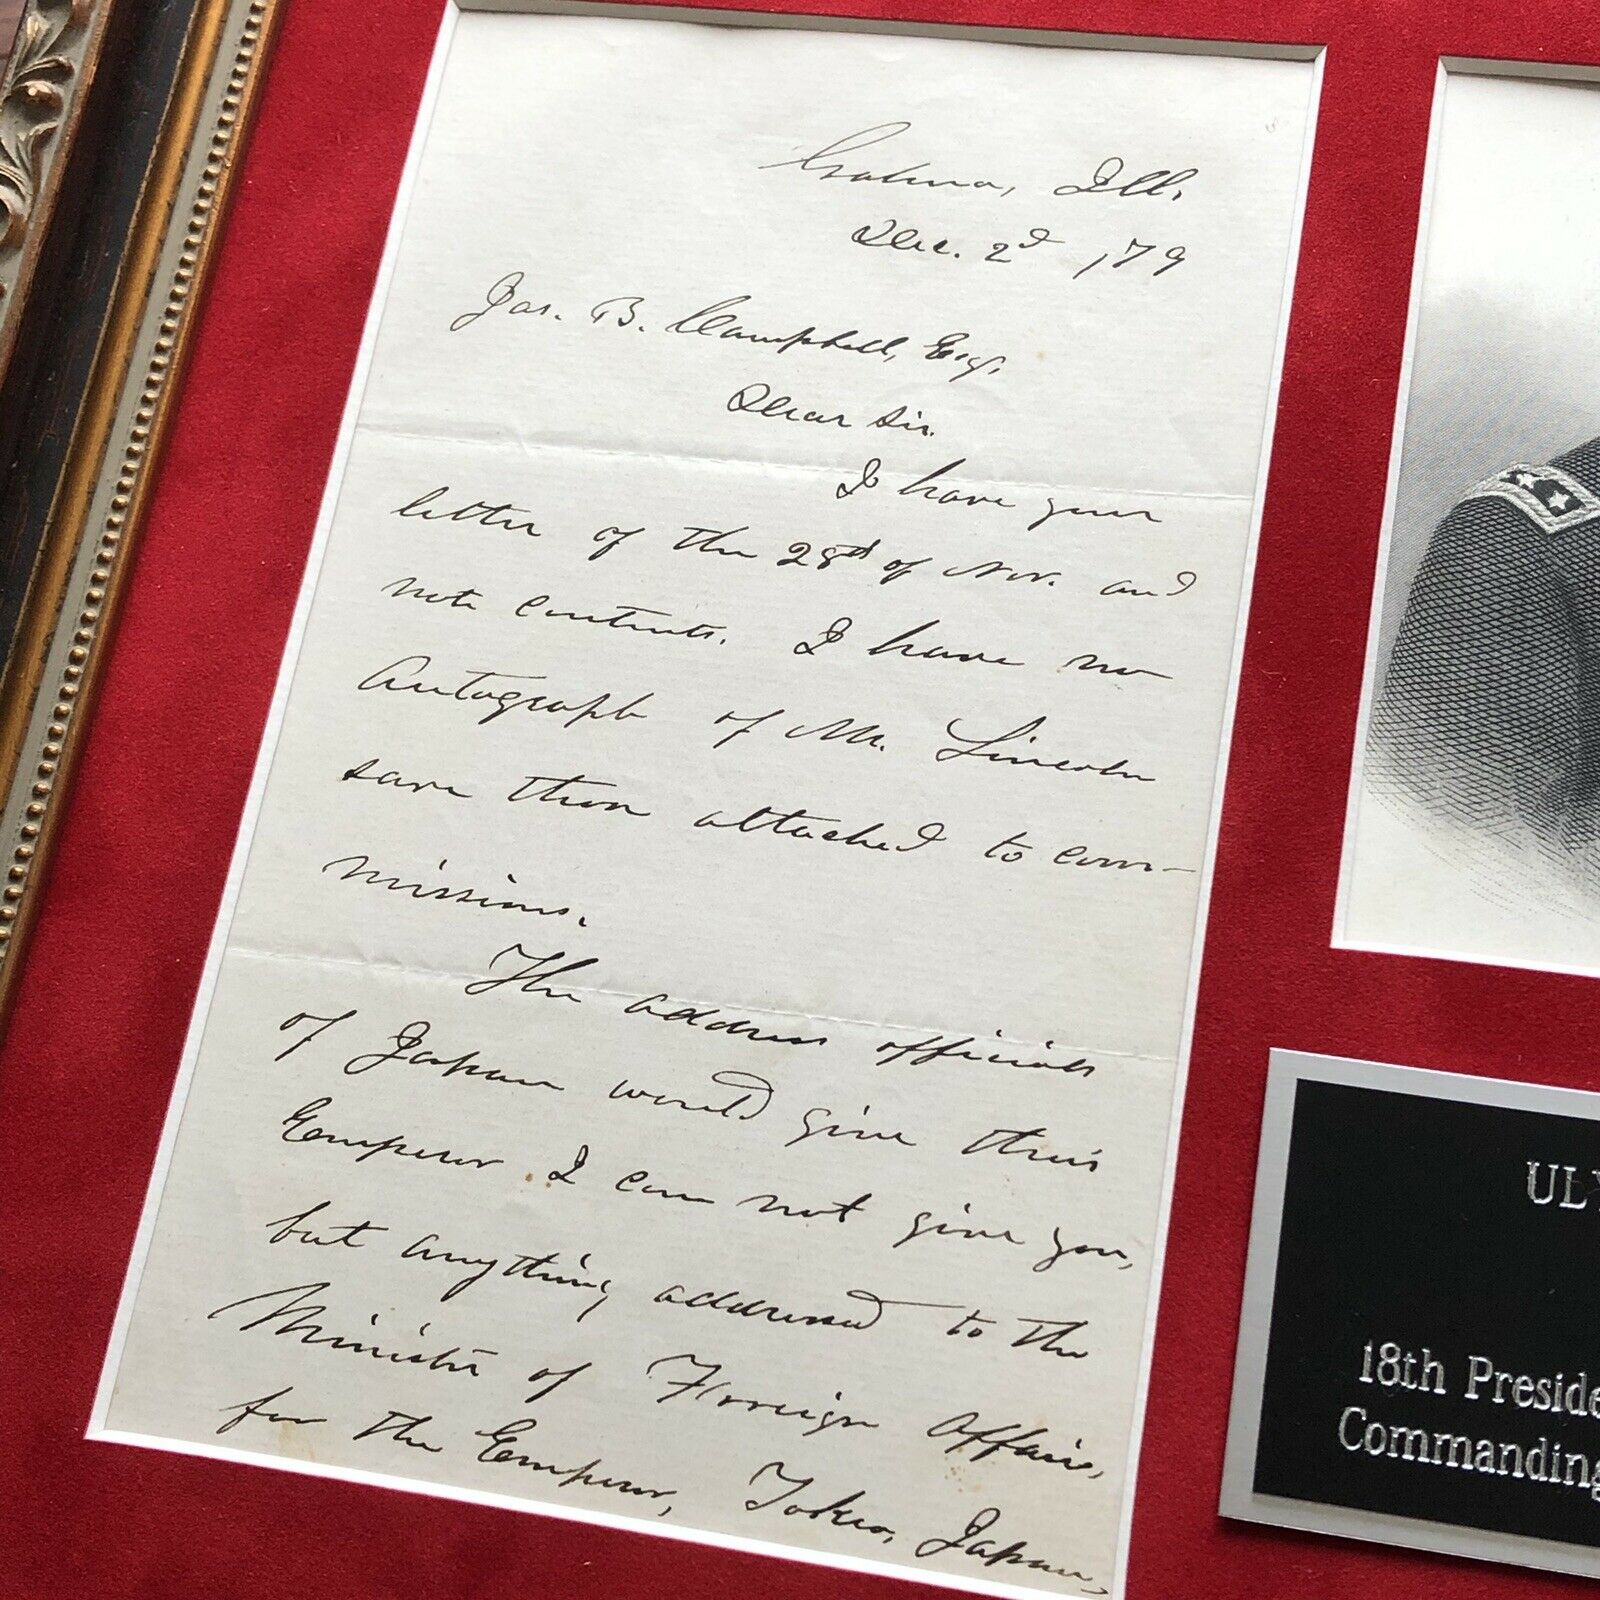 Galena, Ill.
Dec. 2d, 79
Jas. B. Campbell, Esq.
Dear Sir.
I have your
letter of the 28th of Nov. and
note contents. I have no
Autograph of Mr. Lincoln
save those attached to com-
missions.
The address officials
of Japan would give their
Emperor I can not give you,
but anything addressed to the
Minister of Foreign Affairs,
for the Emperor, Tokio, Japan,
ULY
18th Preside
Commanding